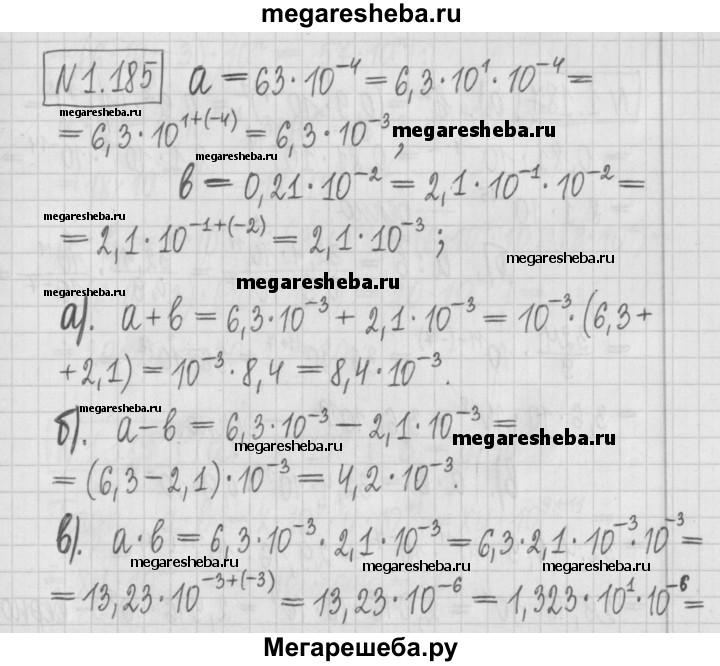 megaresheba.ru
N 1.185 a = 63·10⁻⁴ = 6,3·10¹·10⁻⁴ =
megaresheba.ru
= 6,3·10¹⁺⁽⁻⁴⁾ = 6,3·10⁻³; megaresheba.ru
megaresheba.ru
b = 0,21·10⁻² = 2,1·10⁻¹·10⁻² =
megaresheba.ru
= 2,1·10⁻¹⁺⁽⁻²⁾ = 2,1·10⁻³; megaresheba.ru
megaresheba.ru
а). a + b = 6,3·10⁻³ + 2,1·10⁻³ = 10⁻³·(6,3 +
+ 2,1) = 10⁻³·8,4 = 8,4·10⁻³.
megaresheba.ru
б). a − b = 6,3·10⁻³ − 2,1·10⁻³ =
megaresheba.ru megaresheba.ru
= (6,3 − 2,1)·10⁻³ = 4,2·10⁻³.
в). a·b = 6,3·10⁻³·2,1·10⁻³ = 6,3·2,1·10⁻³·10⁻³ =
megaresheba.ru megaresheba.ru
= 13,23·10⁻³⁺⁽⁻³⁾ = 13,23·10⁻⁶ = 1,323·10¹·10⁻⁶ =
Мегарешеба.ру